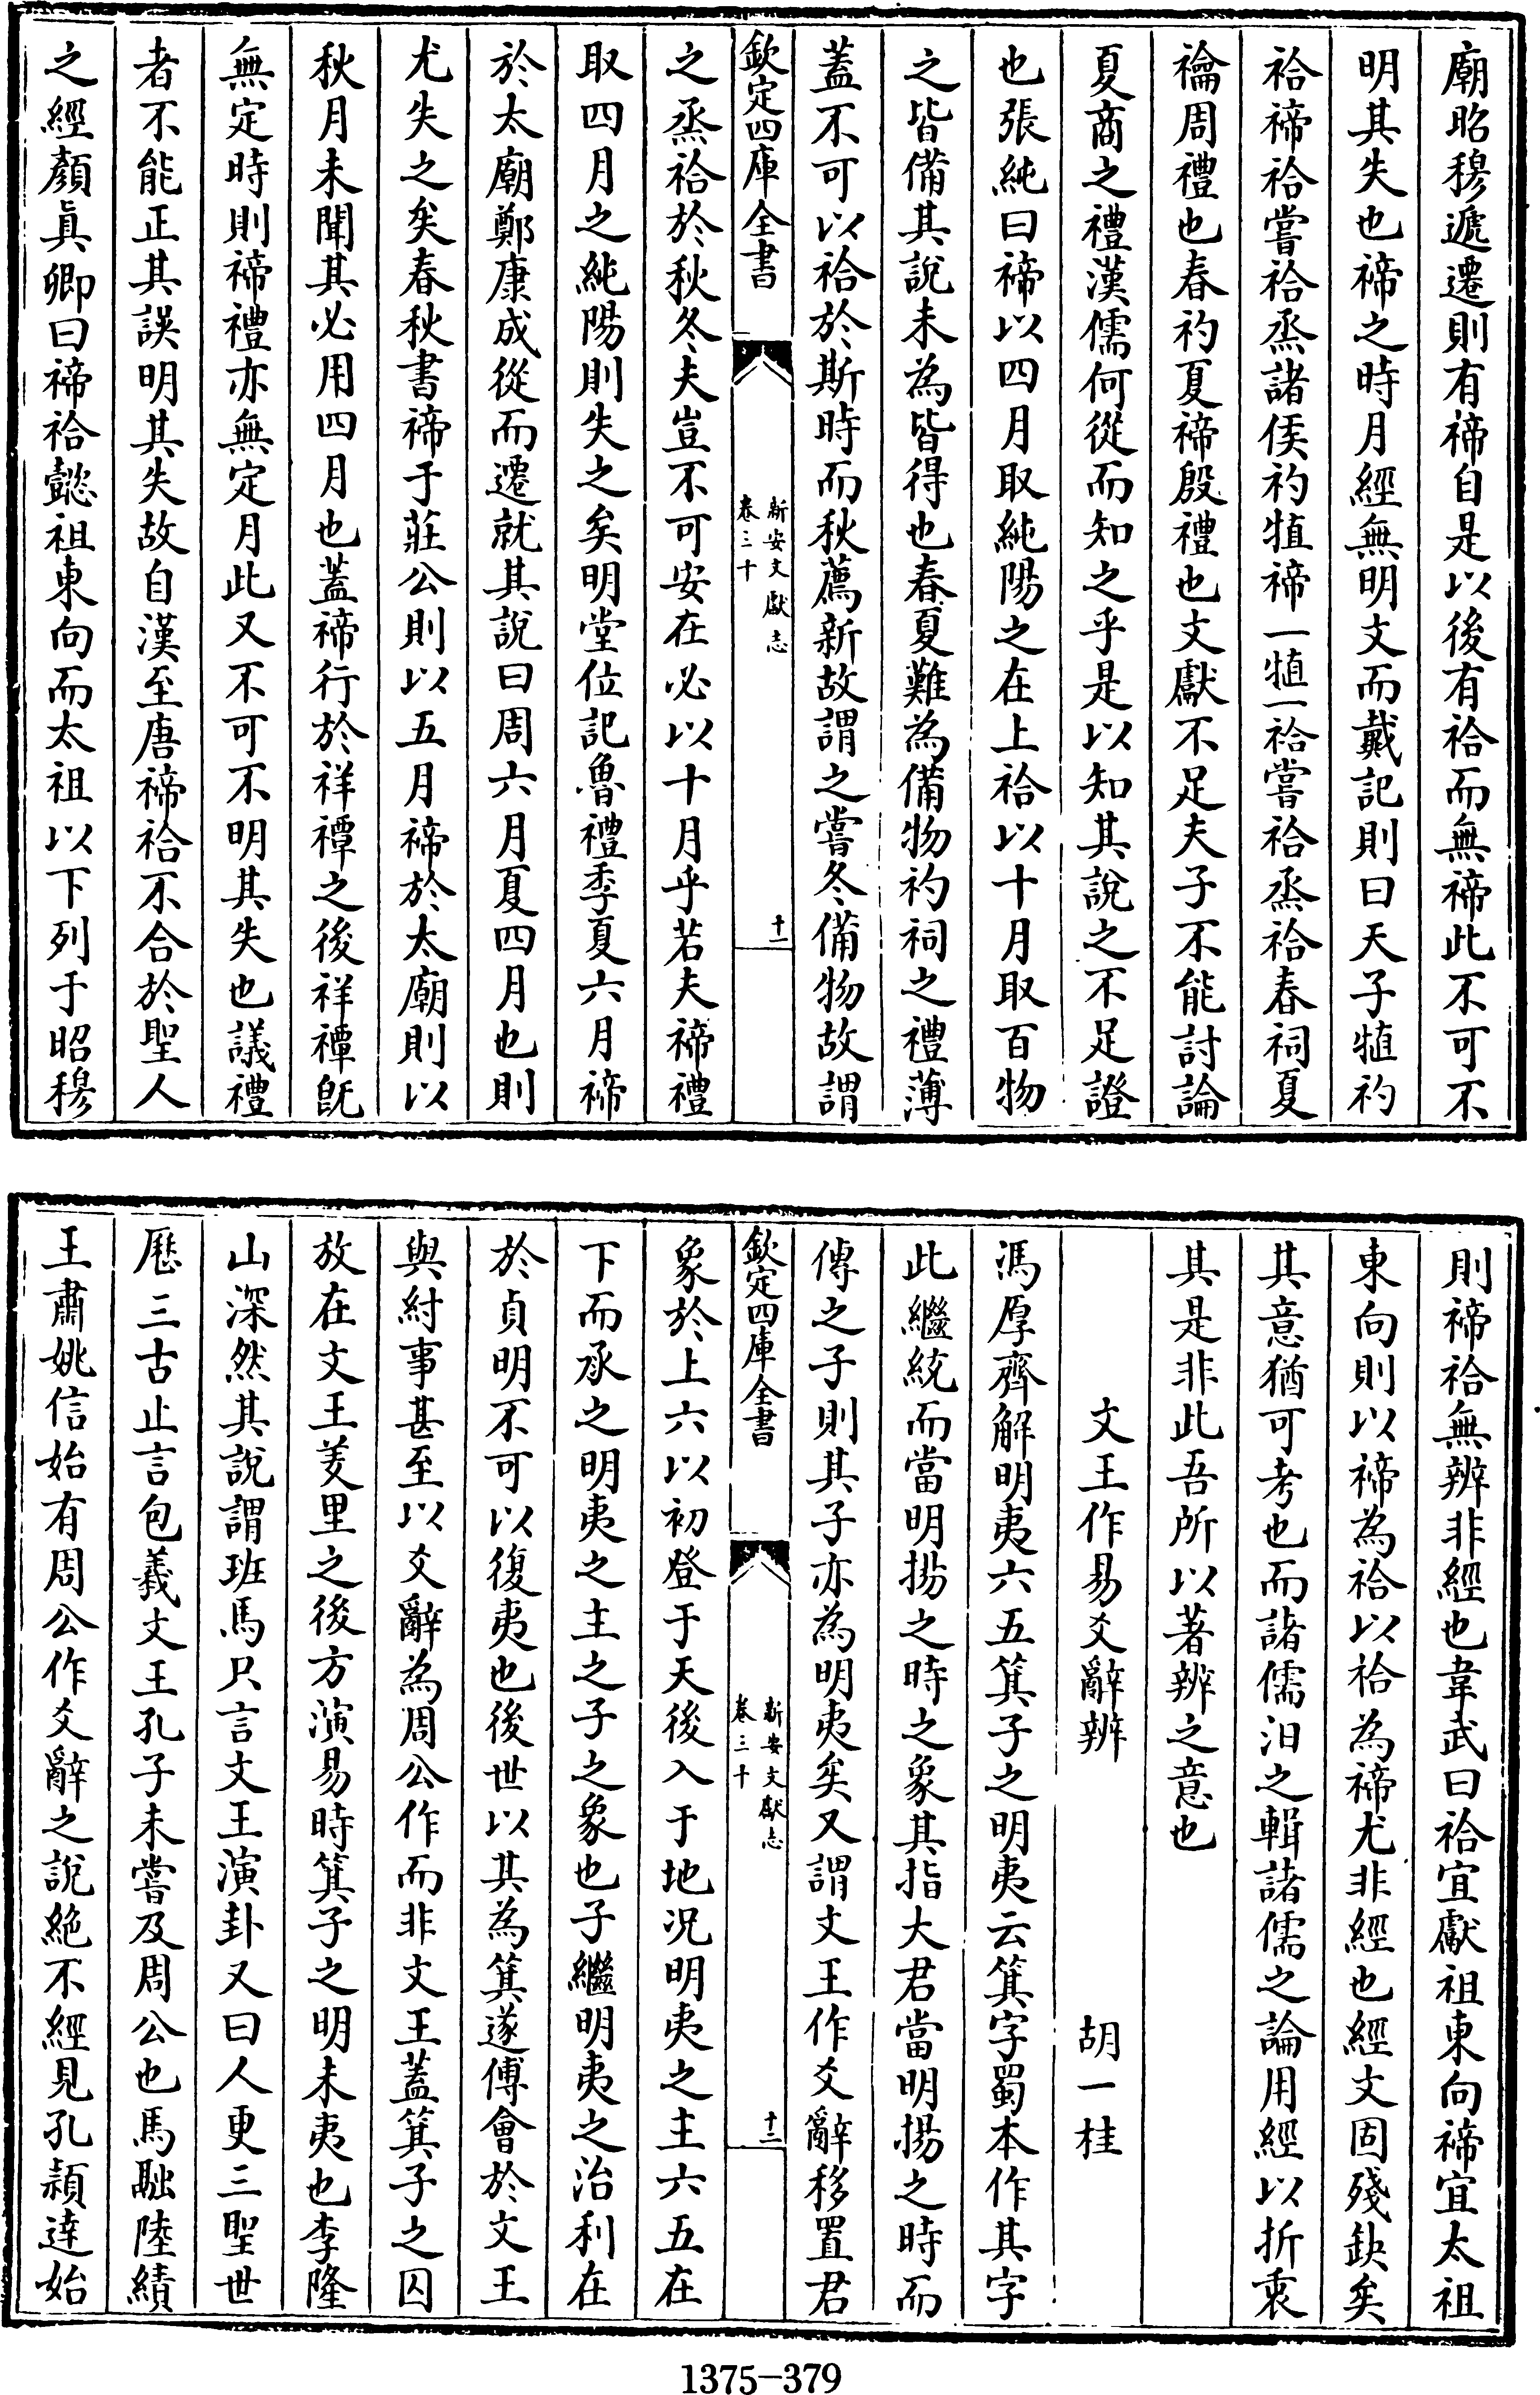 廟昭穆遞遷則有禘自是以後有祫而無禘此不可不
明其失也禘之時月經無明文而戴記則曰天子犆礿
祫禘祫嘗祫烝諸侯礿犆禘一犆一祫嘗祫烝祫春祠夏
禴周禮也春礿夏禘殷禮也文獻不足夫子不能討論
夏商之禮漢儒何從而知之乎是以知其說之不足證
也張純曰禘以四月取純陽之在上祫以十月取百物
之皆備其說未為皆得也春夏難為備物礿祠之禮薄
蓋不可以祫於斯時而秋薦新故謂之嘗冬備物故謂
欽定四庫全書
新安文獻志
卷三十
十一
之烝祫於秋冬夫豈不可安在必以十月乎若夫禘禮
取四月之純陽則失之矣明堂位記魯禮季夏六月禘
於太廟鄭康成從而遷就其說曰周六月夏四月也則
尤失之矣春秋書禘于莊公則以五月禘於太廟則以
秋月未聞其必用四月也蓋禘行於祥禫之後祥禫旣
無定時則禘禮亦無定月此又不可不明其失也議禮
者不能正其誤明其失故自漢至唐禘祫不合於聖人
之經顏真卿曰禘祫懿祖東向而太祖以下列于昭穆
則禘祫無辨非經也韋武曰祫宜獻祖東向禘宜太祖
東向則以禘為祫以祫為禘尤非經也經文固殘缺矣
其意猶可考也而諸儒汨之輯諸儒之論用經以折衷
其是非此吾所以著辨之意也
文王作易爻辭辨
胡一桂
馮厚齊解明夷六五箕子之明夷云箕字蜀本作其字
此繼統而當明揚之時之象其指大君當明揚之時而
傳之子則其子亦為明夷矣又謂文王作爻辭移置君
欽定四庫全書
新安文獻志
卷三十
十二
象於上六以初登于天後入于地况明夷之主六五在
下而承之明夷之主之子之象也子繼明夷之治利在
於貞明不可以復夷也後世以其為箕遂傅會於文王
與紂事甚至以爻辭為周公作而非文王蓋箕子之囚
放在文王羑里之後方演易時箕子之明未夷也李隆
山深然其說謂班馬只言文王演卦又曰人更三聖世
歷三古止言包羲文王孔子未嘗及周公也馬融陸績
王肅姚信始有周公作爻辭之說絶不經見孔穎達始
1375-379